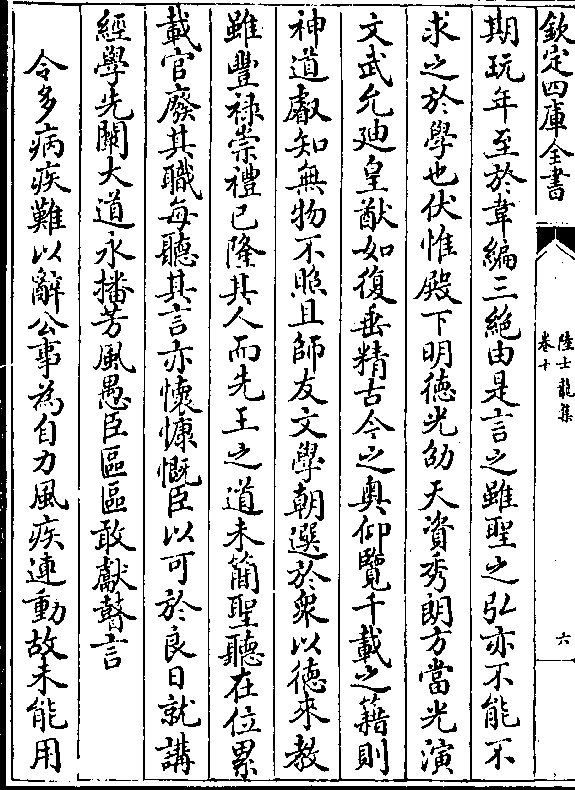 欽定四庫全書
陸士龍集
卷十
六
期玩年至於韋編三絶由是言之雖聖之弘亦不能不
求之於學也伏惟殿下明徳光劭天資秀朗方當光演
文武允廸皇猷如復垂精古今之奥仰覽千載之籍則
神道叡知無物不照且師友文學朝選於衆以徳來教
雖豐禄崇禮已隆其人而先王之道未簡聖聽在位累
載官廢其職每聽其言亦懐慷慨臣以可於良日就講
經學先闡大道永播芳風愚臣區區敢獻瞽言
令多病疾難以辭公事為自力風疾連動故未能用